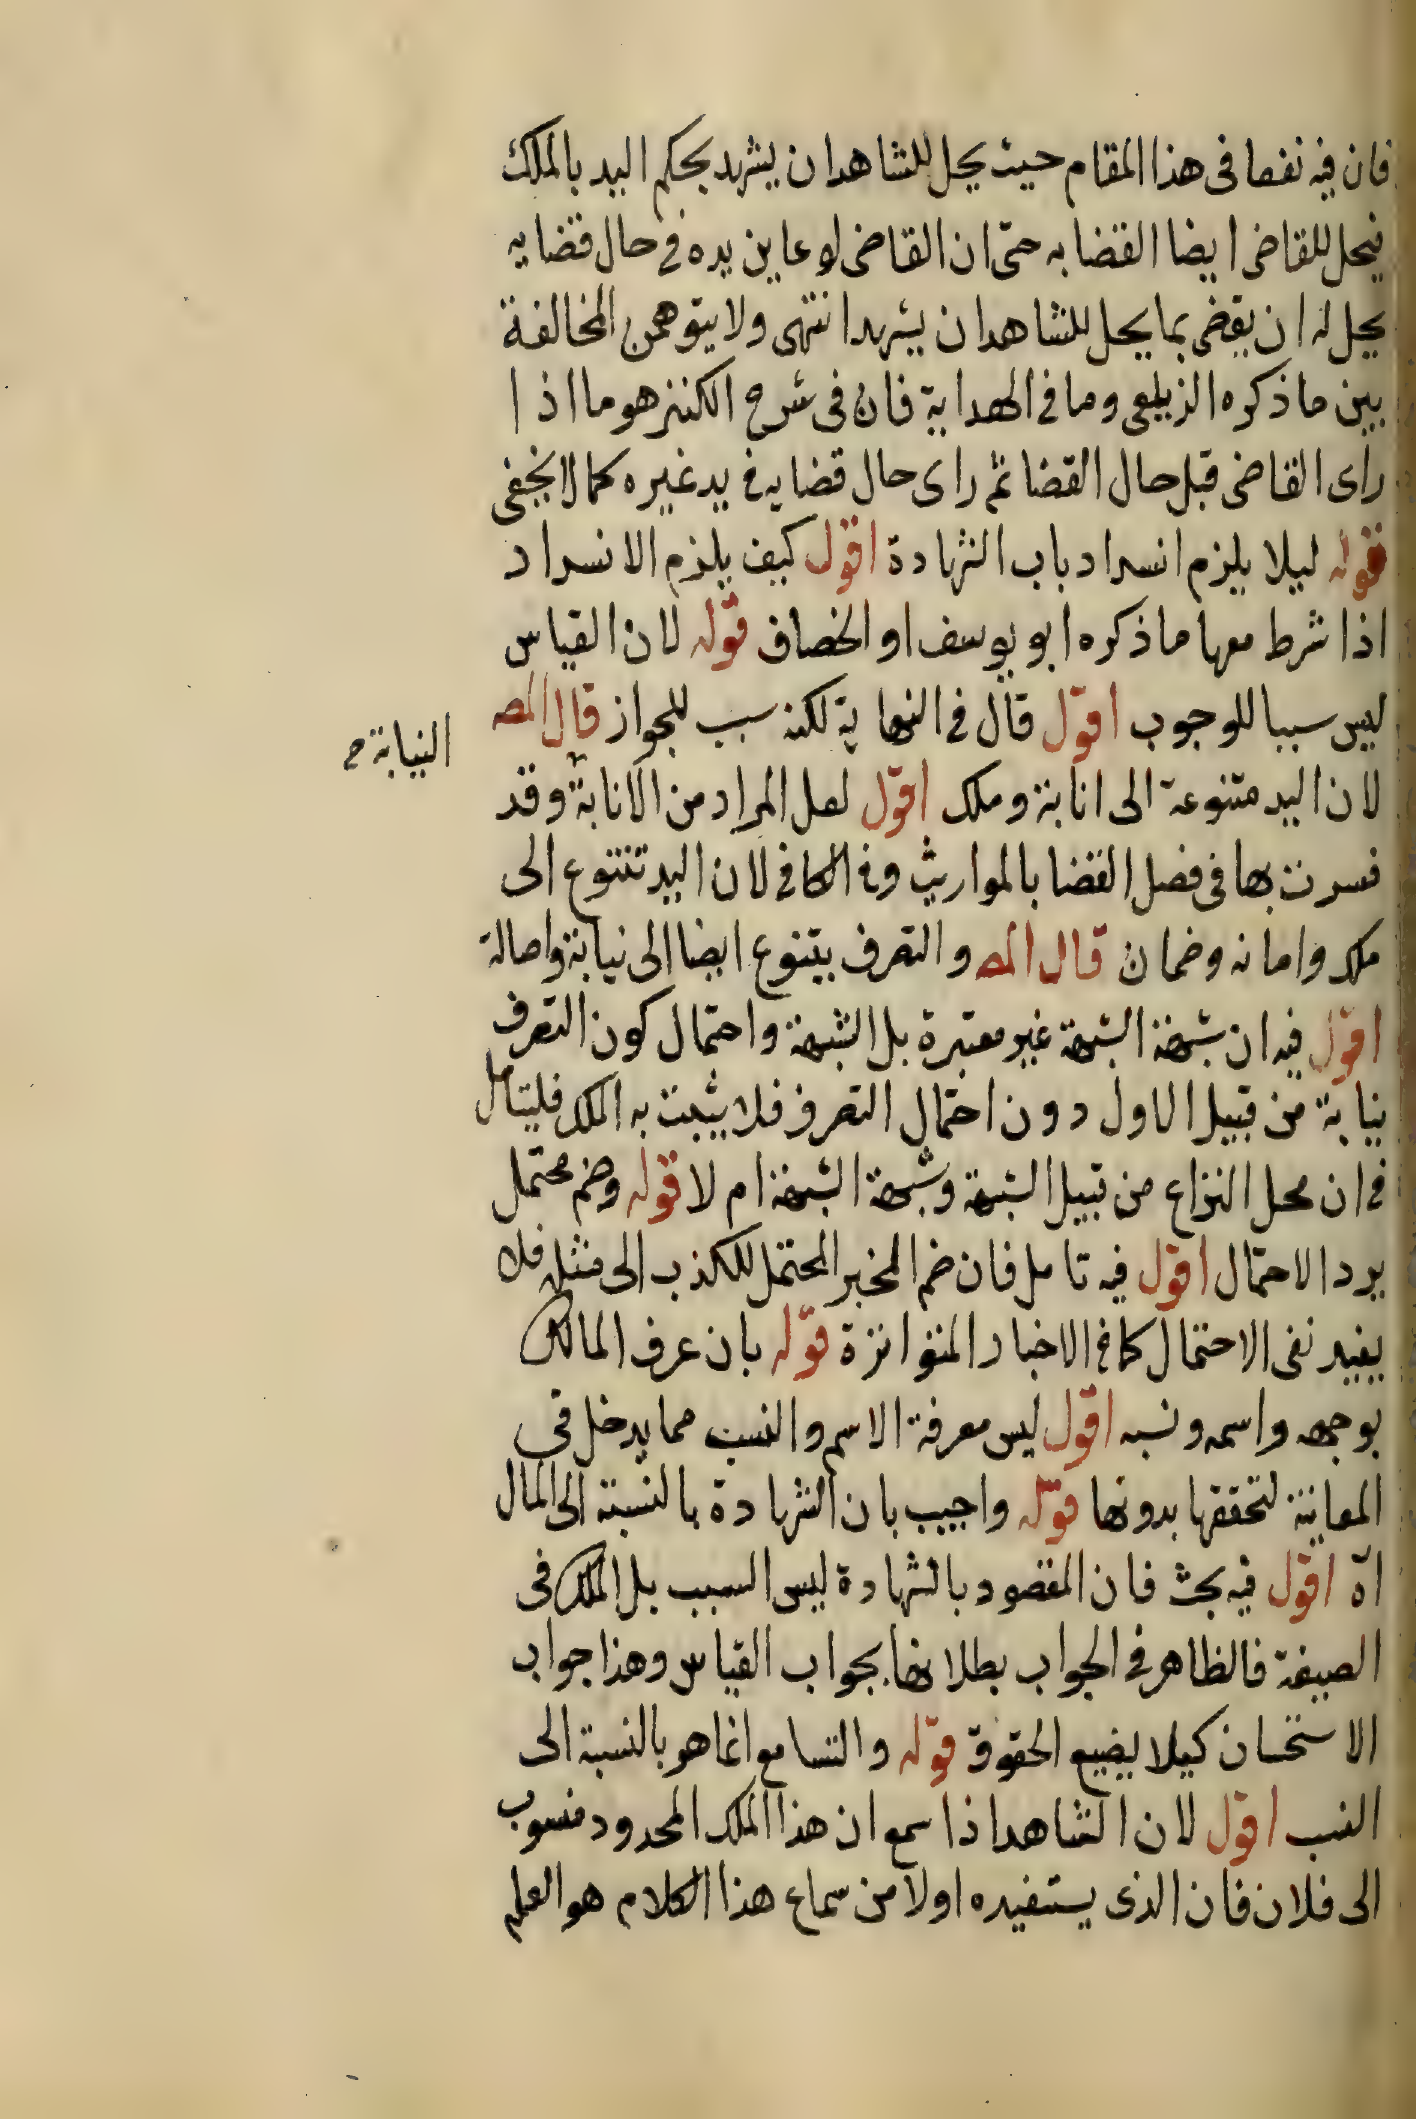 فان فيه نفعا فى هذا المقام حيث يحل للشاهد ان يشهد بحكم اليد بالملك
فيحل للقاضى ايضا القضا به حتى ان القاضى لو عاين يده فى حال قضايه
يحل له ان يقضى بما يحل للشاهد ان يشهد انتهى ولا يتوهمن المخالفة
بين ما ذكره الزيلعى وما فى الهداية فان فى شرح الكنز هو ما اذا
راى القاضى قبل حال القضا ثم راى حال قضايه فى يد غيره كما لا يخفى
قوله ليلا يلزم انسداد باب الشهادة اقول كيف يلزم الانسداد
اذا شرط معها ما ذكره ابو يوسف او الخصاف قوله لان القياس
ليس سببا للوجوب اقول قال فى النهاية لكنه سبب للجواز قال المص
لان اليد متنوعة الى انابة وملك اقول لعل المراد من الانابة وقد
النيابة صح
فسرت بها فى فصل القضا بالمواريث وفى الكافى لان اليد تتنوع الى
ملك وامانه وضمان قال المص والتصرف يتنوع ايضا الى نيابة واصالة
اقول فيه ان شبهة الشبهة غير معتبرة بل الشبهة واحتمال كون التصرف
نيابة من قبيل الاول دون احتمال التصرف فلا يثبت به الملك فليتامل
فى ان محل النزاع من قبيل الشبهة وشبهة الشبهة ام لا قوله وضم محتمل
يرد الاحتمال اقول فيه تامل فان ضم المخبر المحتمل للكذب الى مثله فلا
يفيد نفى الاحتمال كما فى الاخبار المتواترة قوله بان عرف المالك
بوجهه واسمه ونسبه اقول ليس معرفة الاسم والنسب مما يدخل فى
المعاينة لتحققها بدونها قوله واجيب بان الشهادة بالنسبة الى المال
اه اقول فيه بحث فان المقصود بالشهادة ليس السبب بل الملك فى
الضيعة فالظاهر فى الجواب بطلانها بجواب القياس وهذا جواب
الاستحسان كيلا يضيع الحقوق قوله والتسامع انما هو بالنسبة الى
النسب اقول لان الشاهد اذا سمع ان هذا الملك المحدود منسوب
الى فلان فان الذى يستفيده اولا من سماع هذا الكلام هو العلم